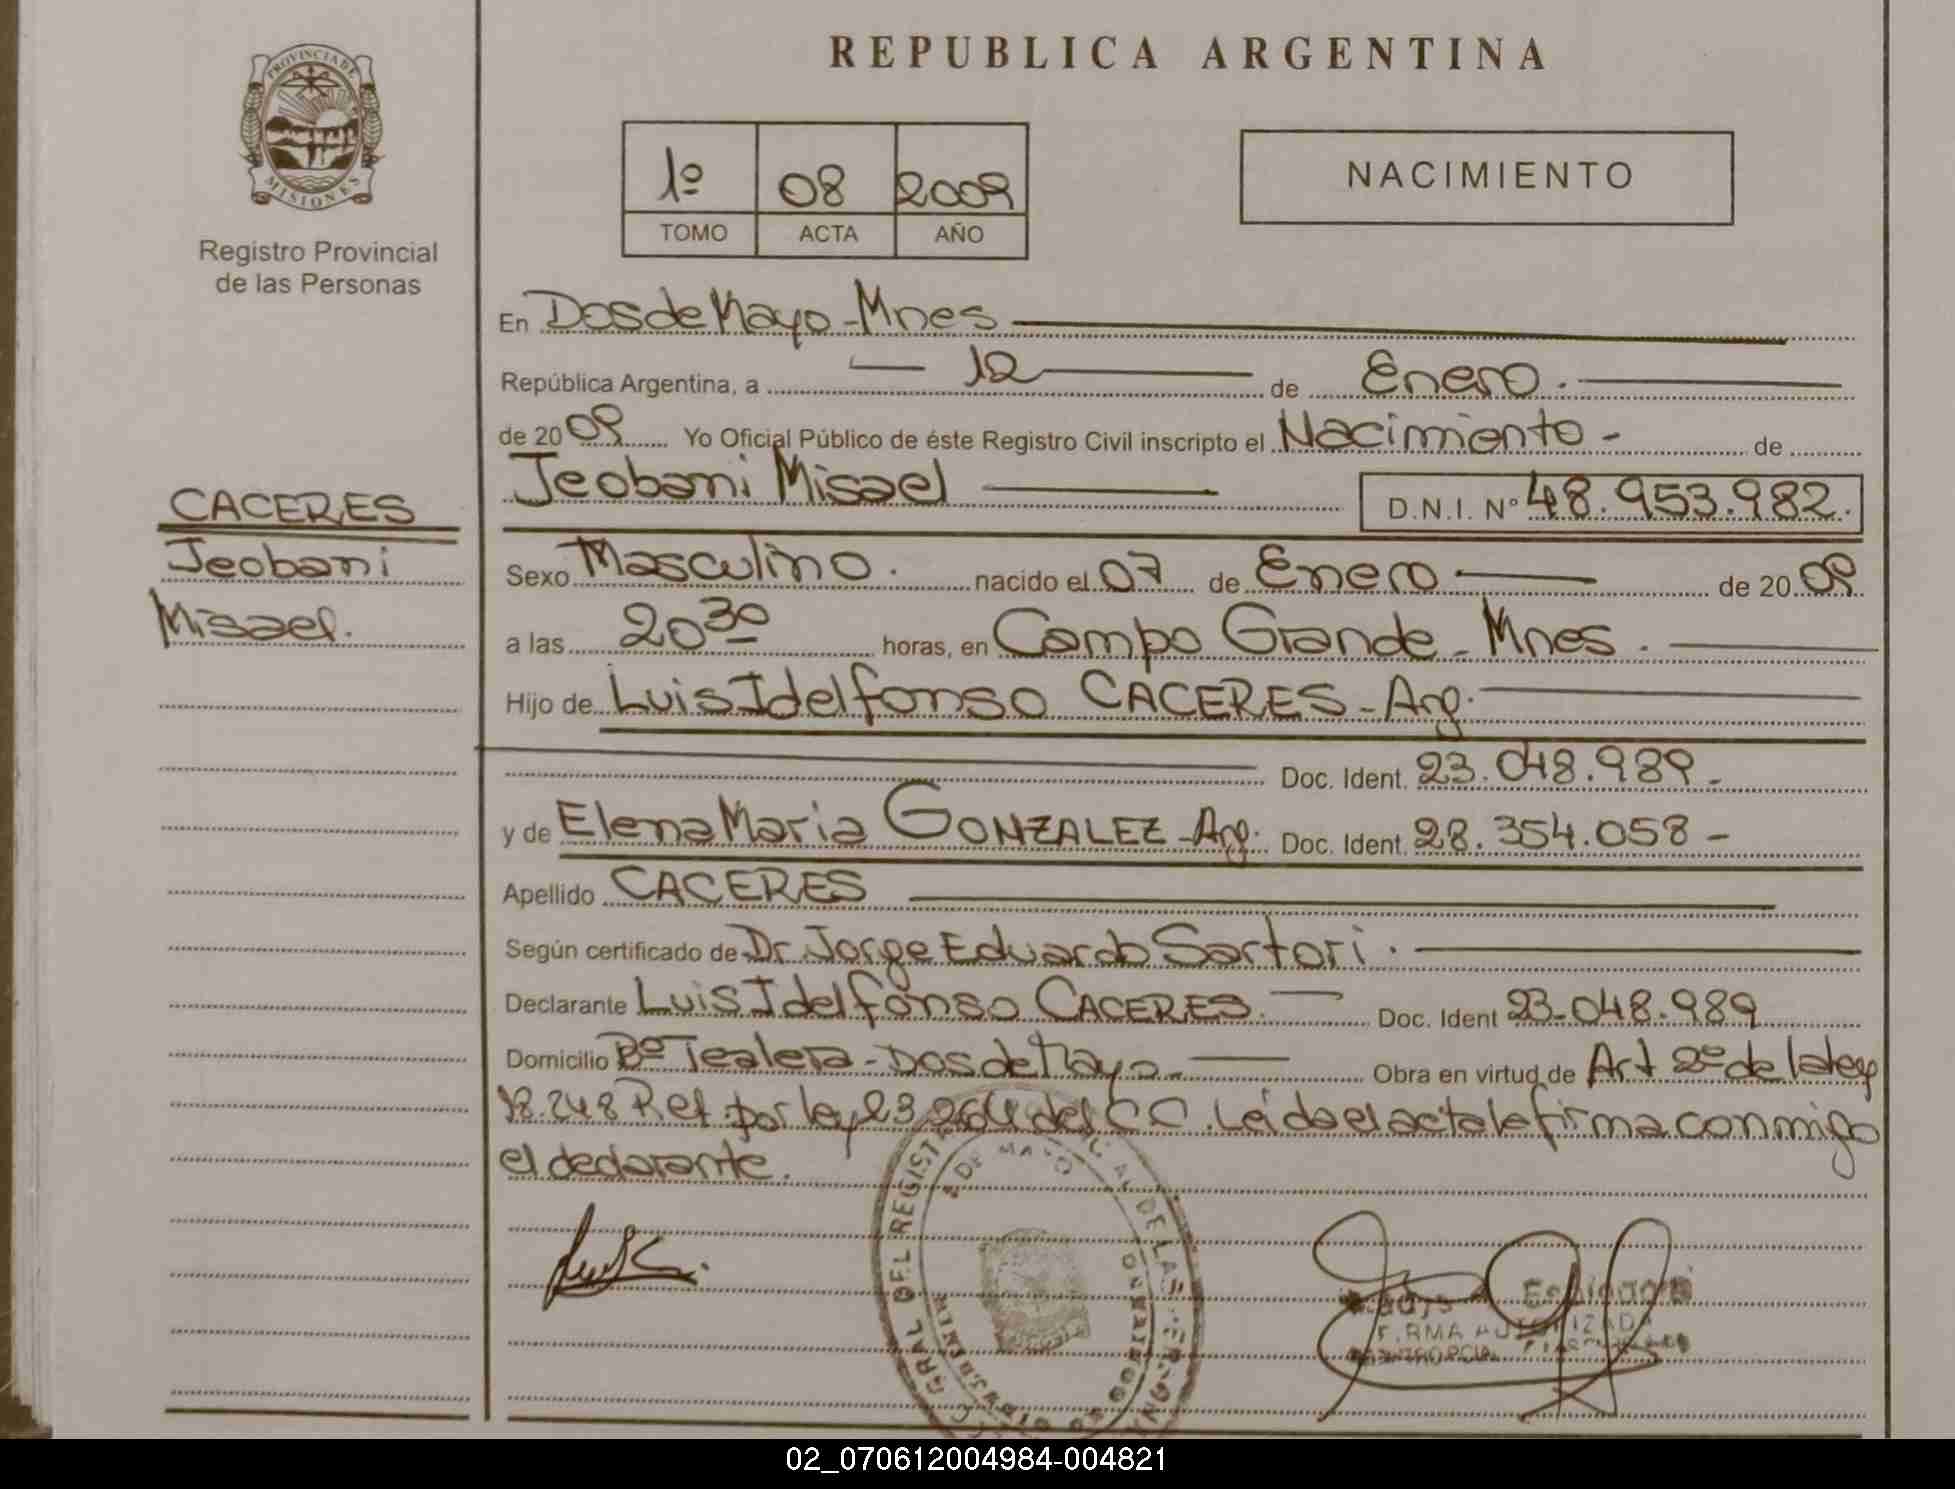 REPUBLICA ARGENTINA
PROVINCIA DE
MISIONES
Registro Provincial
de las Personas
1º 08 2009
TOMO ACTA AÑO
NACIMIENTO
En Dos de Mayo - Mnes
República Argentina, a — 12 de Enero.
de 2009 Yo Oficial Público de éste Registro Civil inscripto el Nacimiento - de
Jeobani Misael D.N.I. Nº 48.953.982.
CACERES
Jeobani
Misael.
Sexo Masculino. nacido el 07 de Enero de 2009
a las 20 30 horas, en Campo Grande - Mnes.
Hijo de Luis Idelfonso CACERES - Arg.
Doc. Ident. 23.048.989 -
y de Elena Maria GONZALEZ - Arg. Doc. Ident. 28.354.058 -
Apellido CACERES
Según certificado de Dr. Jorge Eduardo Sartori.
Declarante Luis Idelfonso CACERES. — Doc. Ident 23.048.989
Domicilio Bº Tealera - Dos de Mayo. — Obra en virtud de Art 2º de la ley
18.248 Ref. por ley 23.264 del C.C. Leída el acta le firma conmigo
el declarante.
GRAL DEL REGIST
DE MAYO
FIRMA AUTORIZADA
02_070612004984-004821